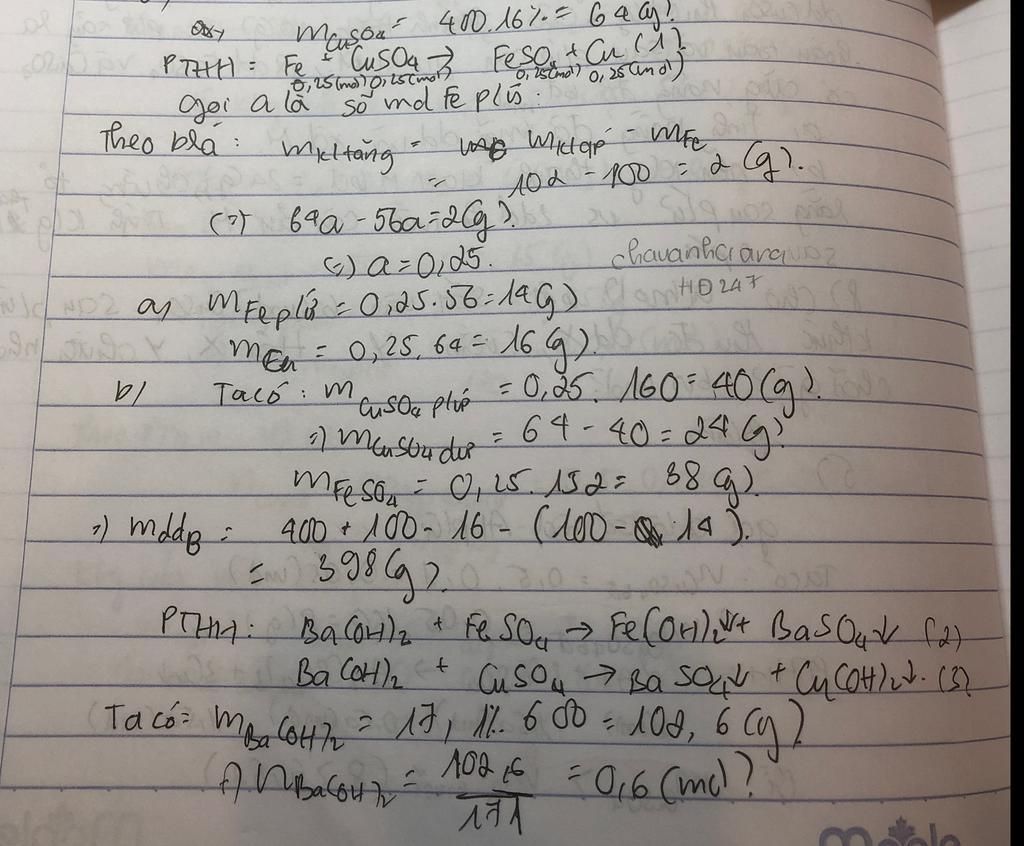 a, mCuSO4 = 400.16% = 64(g).
PTHH: Fe + CuSO4 → FeSO4 + Cu (1)
0,25(mol) 0,25(mol) 0,25(mol) 0,25(mol)
gọi a là số mol Fe pứ:
Theo bra: mkl tăng = mklđp' - mFe
= 102 - 100 = 2(g).
(=) 64a - 56a = 2(g).
(=) a = 0,25.
chauanhciara
HĐ247
a, mFe pứ = 0,25.56 = 14(g)
mCu = 0,25.64 = 16(g).
b/ Ta có: mCuSO4 pứ = 0,25. 160 = 40(g).
=) mCuSO4 dư = 64 - 40 = 24(g).
mFeSO4 = 0,25.152 = 38(g).
=) mddB = 400 + 100 - 16 - (100 - 14).
= 398(g).
PTHH: Ba(OH)2 + FeSO4 → Fe(OH)2↓ + BaSO4↓ (2)
Ba(OH)2 + CuSO4 → BaSO4↓ + Cu(OH)2↓. (3)
Ta có: mBa(OH)2 = 17,1%. 600 = 102,6(g)
=) nBa(OH)2 = 102,6/171 = 0,6(mol)
maple